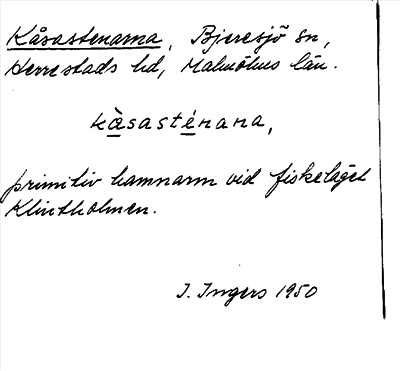 Kåsastenarna, Bjeresjö sn,
Herrestads hd, Malmöhus län.
kåsasténana,
primitiv hamnarm vid fiskeläget
Klintholmen.
I. Ingers 1950